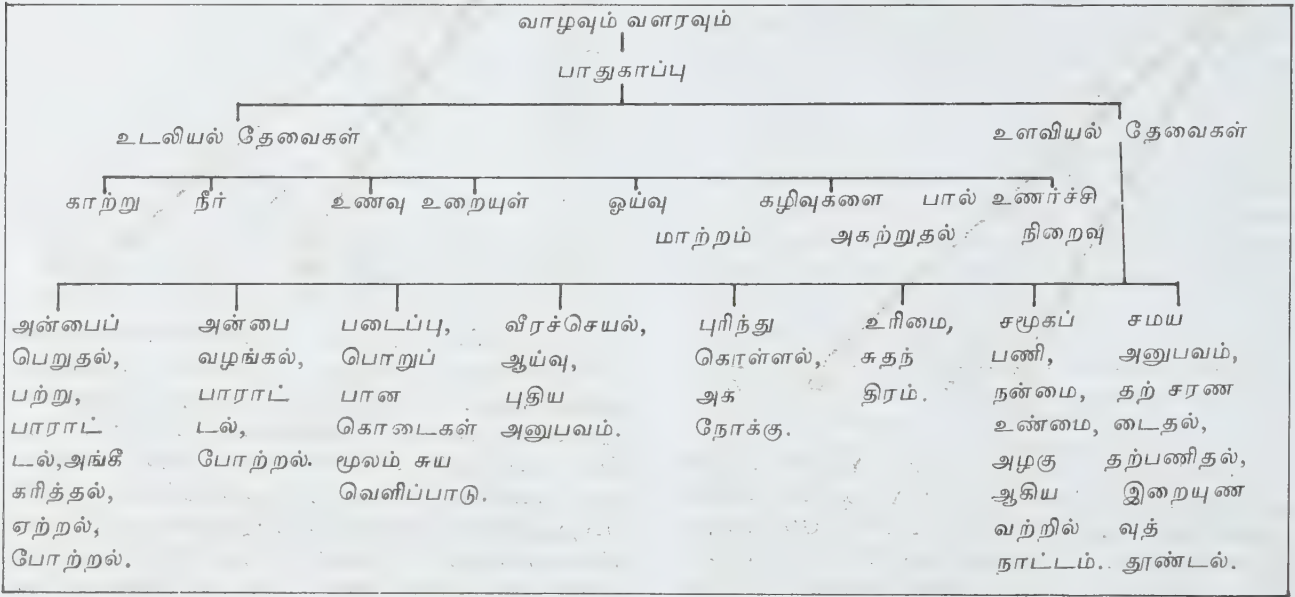 வாழவும் வளரவும்
பாதுகாப்பு
உடலியல் தேவைகள்
உளவியல் தேவைகள்
காற்று நீர் உணவு உறையுள் ஓய்வு கழிவுகளை பால் உணர்ச்சி
மாற்றம் அகற்றுதல் நிறைவு
அன்பைப்
பெறுதல்,
பற்று,
பாராட்
டல்,அங்கீ
கரித்தல்,
ஏற்றல்,
போற்றல்.
அன்பை
வழங்கல்,
பாராட்
டல்,
போற்றல்.
படைப்பு,
பொறுப்
பான
கொடைகள்
மூலம் சுய
வெளிப்பாடு.
வீரச்செயல்,
ஆய்வு,
புதிய
அனுபவம்.
புரிந்து
கொள்ளல்,
அக
நோக்கு.
உரிமை,
சுதந்
திரம்.
சமூகப்
பணி,
நன்மை,
உண்மை,
அழகு
ஆகிய
வற்றில்
நாட்டம்..
சமய
அனுபவம்,
தற் சரண
டைதல்,
தற்பணிதல்,
இறையுண
வுத்
தூண்டல்.